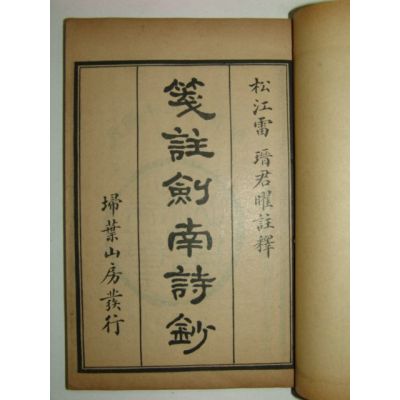 松江雷瑨君曜註釋
箋註劍南詩鈔
埽葉山房發行